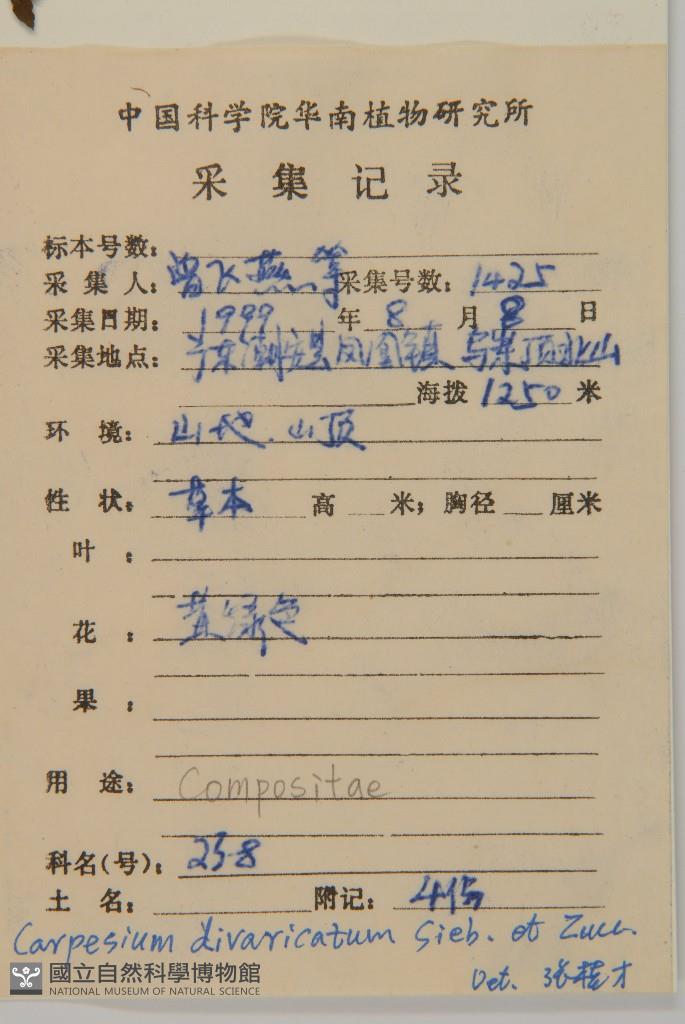 中国科学院华南植物研究所
采集记录
标本号数：
采集人：曾飞燕等 采集号数：1425
采集日期：1999 年 8 月 8 日
采集地点：广东潮安县凤凰镇 乌岽顶
海拨 1250 米
环境：山地．山顶
性状：草本 高 米；胸径 厘米
叶：
花：黄绿色
果：
用途：Compositae
科名(号)：238
土名： 附记：4份
Carpesium divaricatum Sieb. et Zucc.
Det. 张桂才
國立自然科學博物館
NATIONAL MUSEUM OF NATURAL SCIENCE